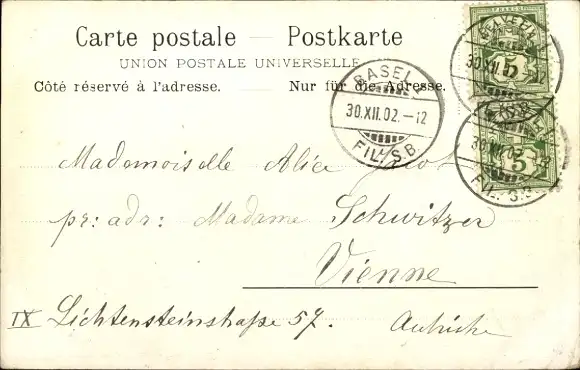 Carte postale — Postkarte
UNION POSTALE UNIVERSELLE
Côté réservé à l'adresse. — Nur für die Adresse.
HELVETIA
FRANCO
5
5
BASEL
30.XII.02.–12
FIL. S.B.
30.XII.02.–12
FIL. S.B.
Mademoiselle Alice
pr: adr: Madame Schwitzer
Vienne
IX Lichtensteinstraße 57. Autriche